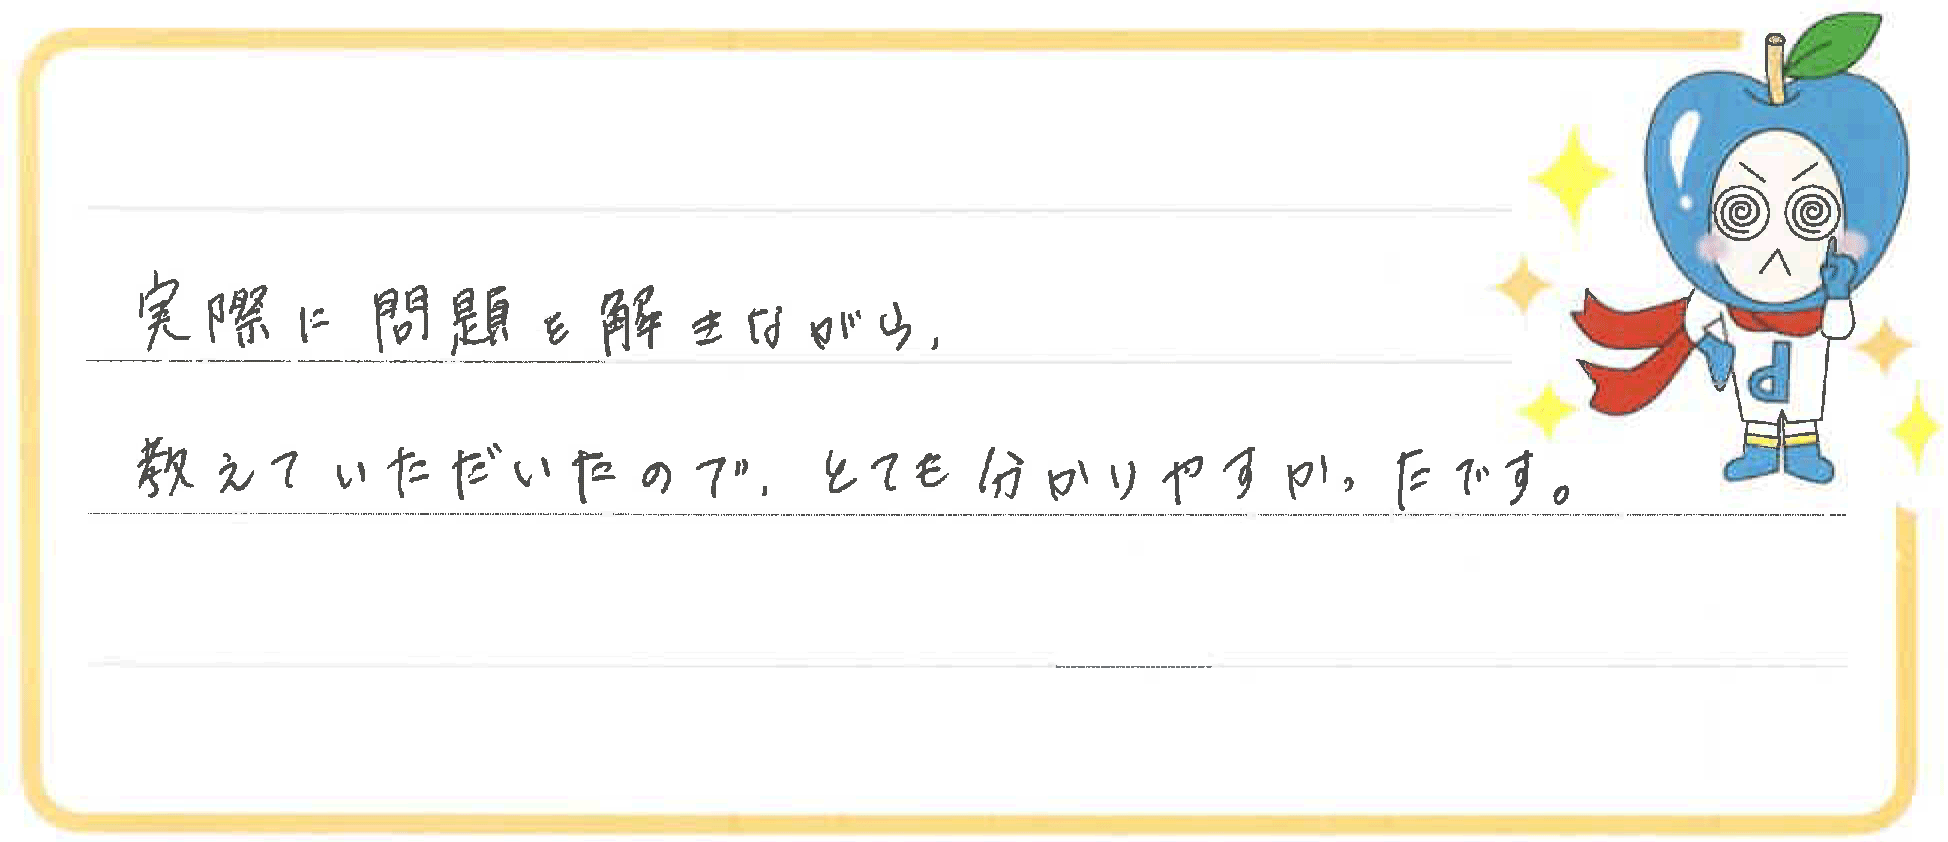 実際に問題を解きながら、
教えていただいたので、とても分かりやすかったです。
d